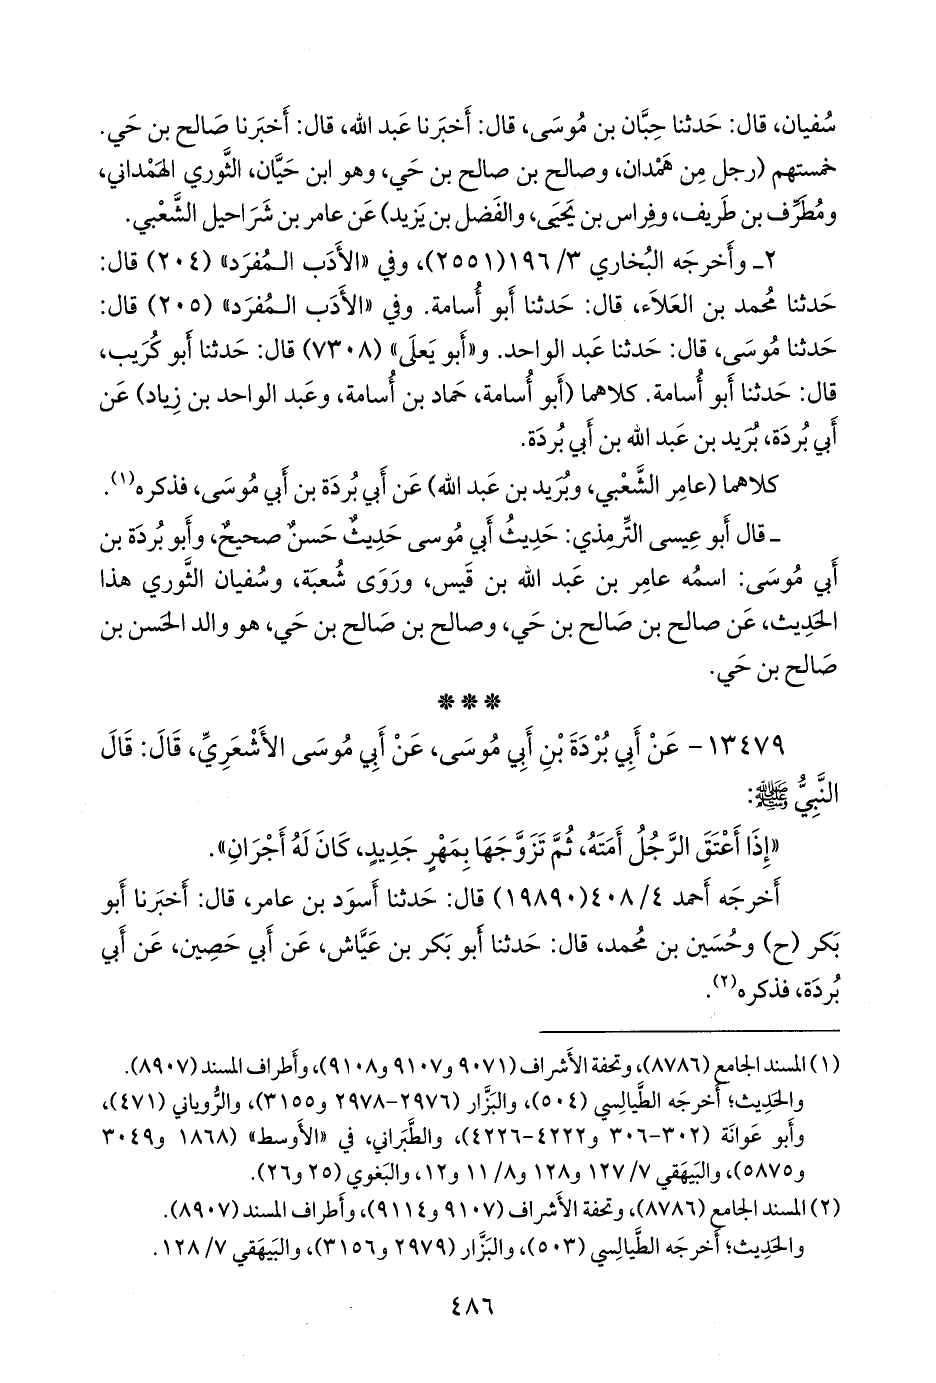 سُفيان، قال: حَدثنا حِبَّان بن مُوسَى، قال: أَخبَرنا عَبد الله، قال: أَخبَرنا صَالح بن حَي.
خمستهم (رجل مِن هَمْدان، وصالح بن صالح بن حَي، وهو ابن حَيَّان، الثَّوري الهَمْداني،
ومُطَرِّف بن طَريف، وفِراس بن يَحيَى، والفَضل بن يَزيد) عَن عامر بن شَرَاحيل الشَّعْبي.
٢ـ وأَخرجَه البُخاري ٣/ ١٩٦(٢٥٥١)، وفي «الأَدَب الـمُفرَد» (٢٠٤) قال:
حَدثنا مُحمد بن العَلَاء، قال: حَدثنا أَبو أُسامة. وفي «الأَدَب الـمُفرَد» (٢٠٥) قال:
حَدثنا مُوسَى، قال: حَدثنا عَبد الواحد. و«أَبو يَعلَى» (٧٣٠٨) قال: حَدثنا أَبو كُرَيب،
قال: حَدثنا أَبو أُسامة. كلاهما (أَبو أُسامة، حَماد بن أُسامة، وعَبد الواحد بن زِياد) عَن
أَبي بُردَة، بُرَيد بن عَبد الله بن أَبي بُردَة.
كلاهما (عامِر الشَّعْبي، وبُرَيد بن عَبد الله) عَن أَبي بُردَة بن أَبي مُوسَى، فذكره(١).
ـ قال أَبو عِيسى التِّرمِذي: حَديثُ أَبي مُوسى حَديثٌ حَسنٌ صحيحٌ، وأَبو بُردَة بن
أَبي مُوسَى: اسمُه عامِر بن عَبد الله بن قَيس، ورَوَى شُعبَة، وسُفيان الثَّوري هذا
الحَدِيث، عَن صالح بن صَالح بن حَي، وصالح بن صَالح بن حَي، هو والد الحَسن بن
صَالح بن حَي.
***
١٣٤٧٩- عَنْ أَبِي بُرْدَةَ بْنِ أَبِي مُوسَى، عَنْ أَبِي مُوسَى الأَشْعَرِيِّ، قَالَ: قَالَ
النَّبِيُّ ﷺ:
«إِذَا أَعْتَقَ الرَّجُلُ أَمَتَهُ، ثُمَّ تَزَوَّجَهَا بِمَهْرٍ جَدِيدٍ، كَانَ لَهُ أَجْرَانِ».
أَخرجَه أَحمد ٤/ ٤٠٨(١٩٨٩٠) قال: حَدثنا أَسوَد بن عامر، قال: أَخبَرنا أَبو
بَكر (ح) وحُسَين بن مُحمد، قال: حَدثنا أَبو بَكر بن عَيَّاش، عَن أَبي حَصِين، عَن أَبي
بُردَة، فذكره(٢).
(١) المسند الجامع (٨٧٨٦)، وتحفة الأَشراف (٩٠٧١ و٩١٠٧ و٩١٠٨)، وأَطراف المسند (٨٩٠٧).
والحَدِيث؛ أَخرجَه الطَّيالِسي (٥٠٤)، والبَزَّار (٢٩٧٦-٢٩٧٨ و٣١٥٥)، والرُّوياني (٤٧١)،
وأَبو عَوانَة (٣٠٢-٣٠٦ و٤٢٢٢-٤٢٢٦)، والطَّبَراني، في «الأَوسط» (١٨٦٨ و٣٠٤٩
و٥٨٧٥)، والبَيهَقي ٧/ ١٢٧ و١٢٨ و٨/ ١١ و١٢، والبَغوي (٢٥ و٢٦).
(٢) المسند الجامع (٨٧٨٦)، وتحفة الأَشراف (٩١٠٧ و٩١١٤)، وأَطراف المسند (٨٩٠٧).
والحَدِيث؛ أَخرجَه الطَّيالِسي (٥٠٣)، والبَزَّار (٢٩٧٩ و٣١٥٦)، والبَيهَقي ٧/ ١٢٨.
٤٨٦